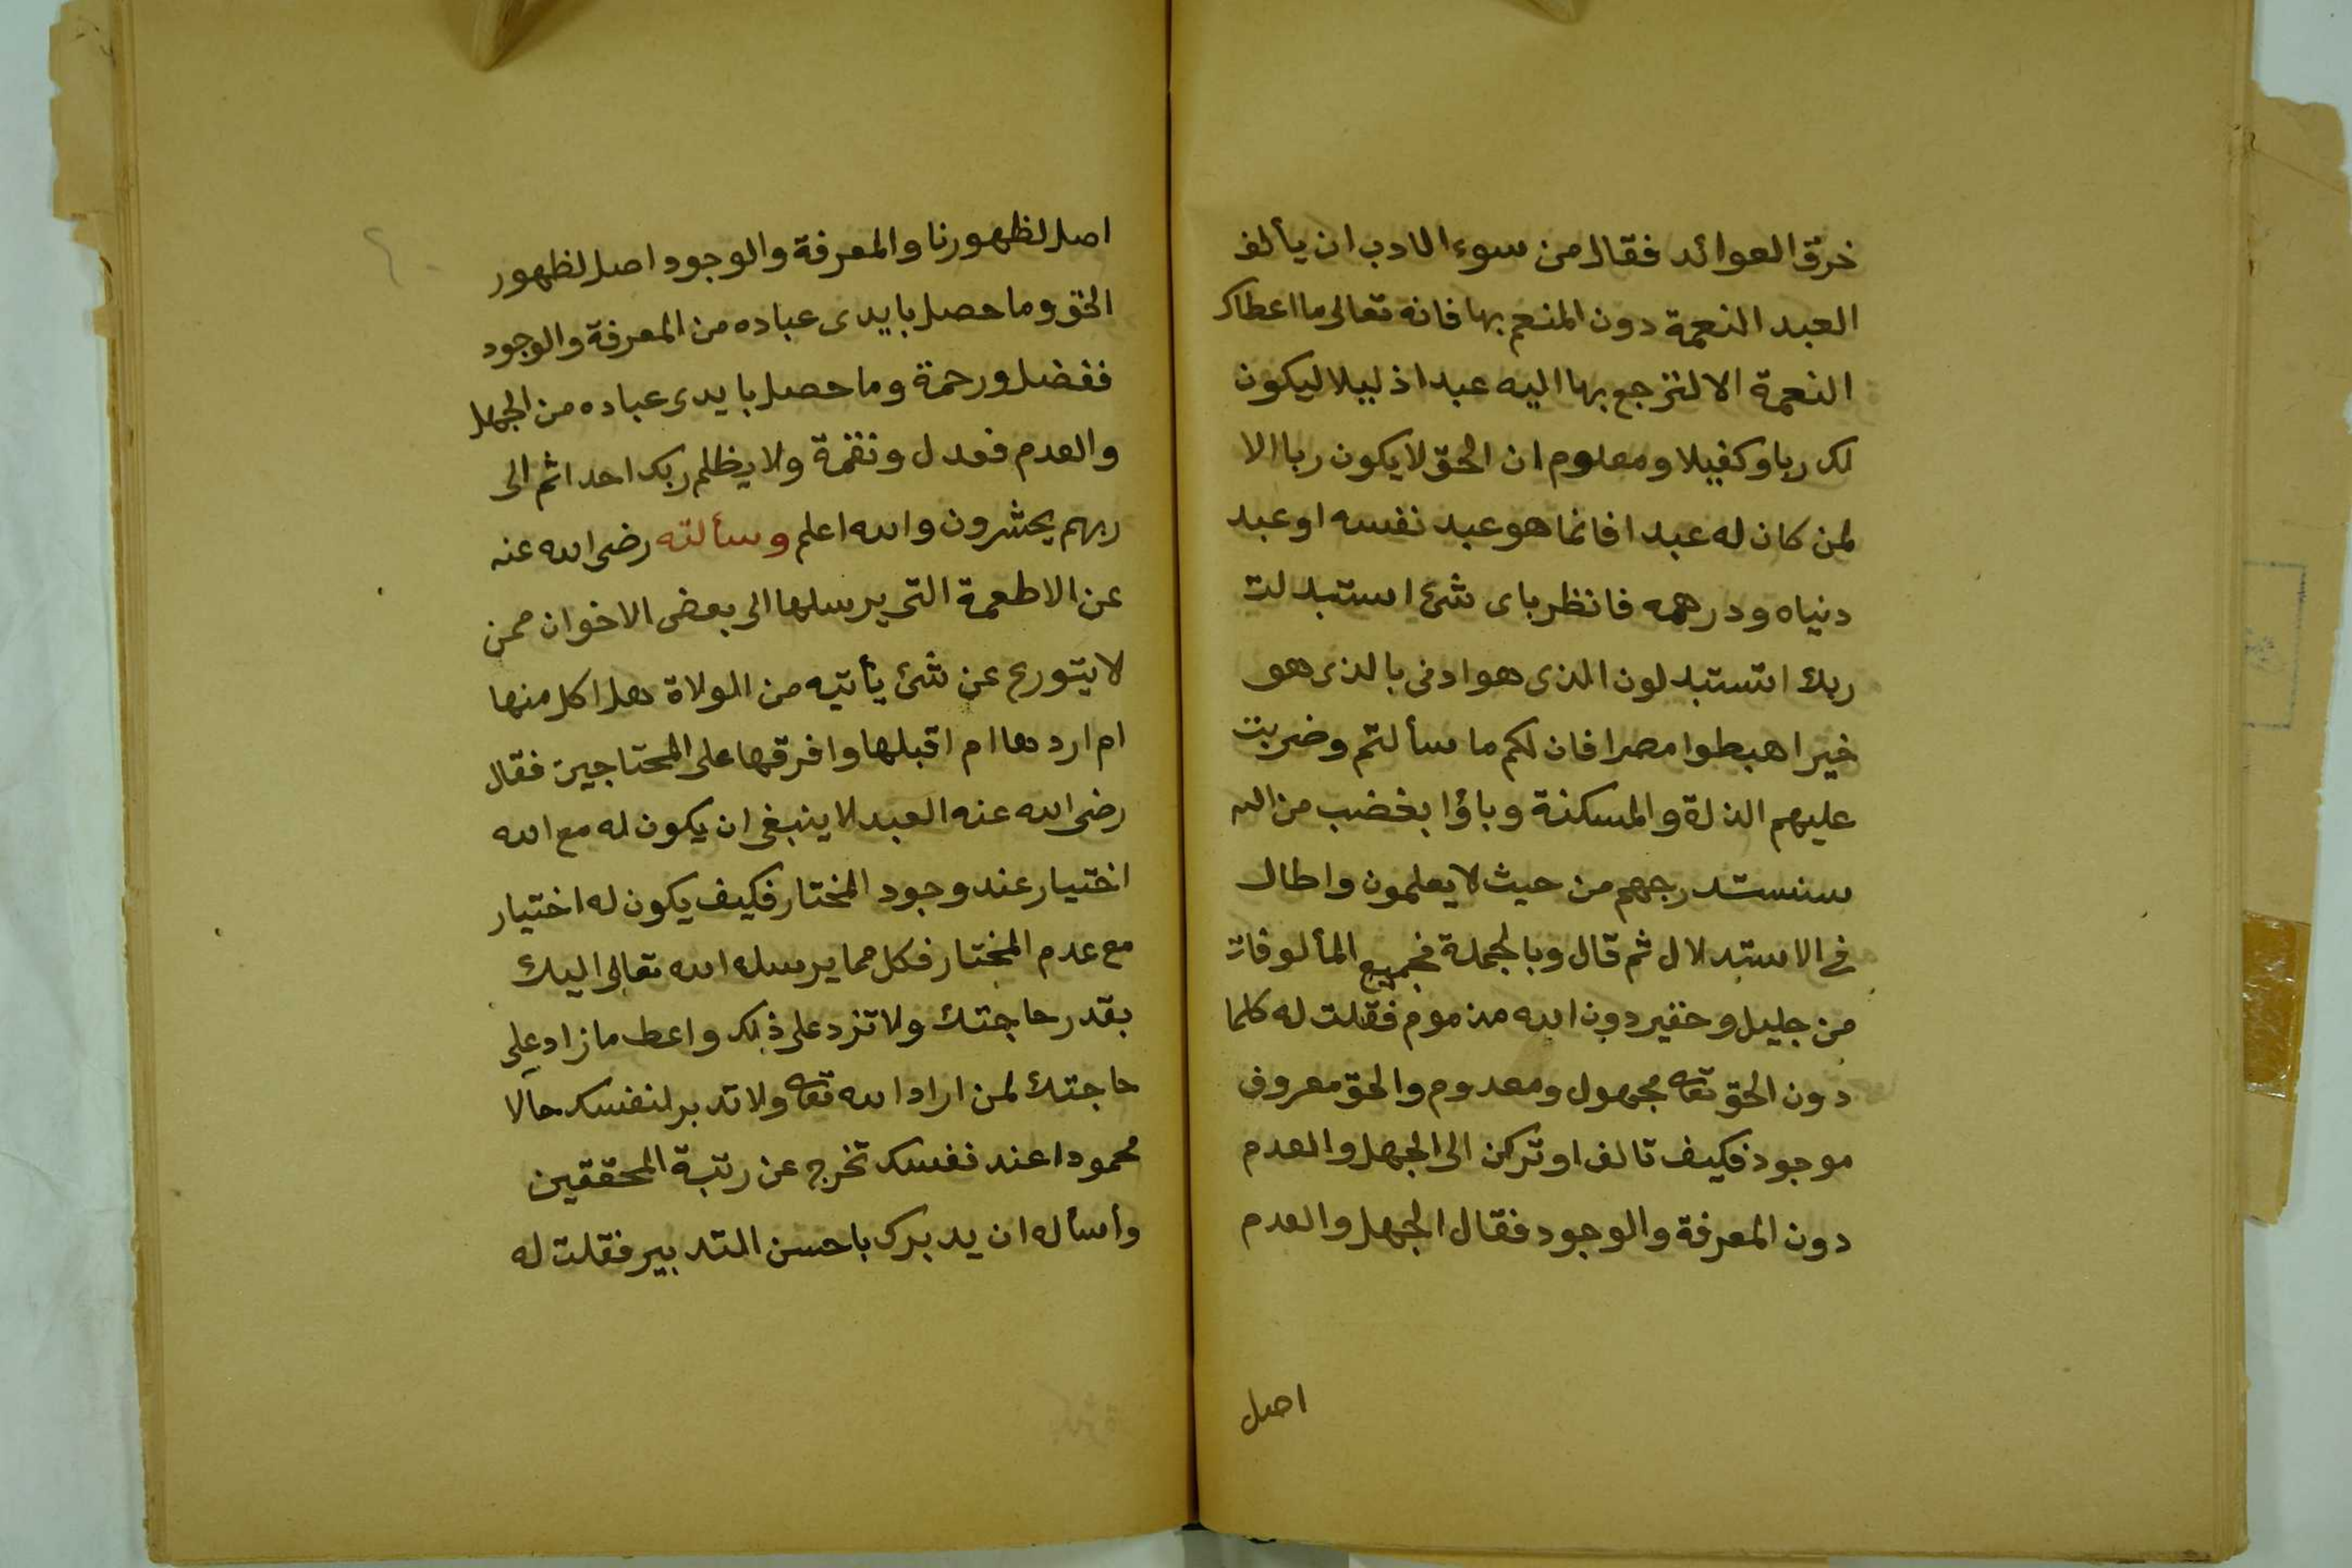 خرق العوائد فقال من سوء الادب ان يألف
العبد النعمة دون المنعم بها فانه تعالى ما اعطاك
النعمة الا لترجع بها اليه عبدا ذليلا ليكون
لك ربا وكفيلا ومعلوم ان الحق لا يكون ربا الا
لمن كان له عبدا فانما هو عبد نفسه او عبد
دنياه ودرهمه فانظر باى شئ استبدلت
ربك اتستبدلون الذى هو ادنى بالذى هو
خير اهبطوا مصرا فان لكم ما سألتم وضربت
عليهم الذلة والمسكنة وباؤا بغضب من الله
سنستدرجهم من حيث لا يعلمون واطال
فى الاستدلال ثم قال وبالجملة فجميع المألوفات
من جليل وحقير دون الله مذموم فقلت له كلما
دون الحق تعا مجهول ومعدوم والحق معروف
موجود فكيف تالف او تركن الى الجهل والعدم
دون المعرفة والوجود فقال الجهل والعدم
اصل
اصل لظهورنا والمعرفة والوجود اصل لظهور
الحق وما حصل بايدى عباده من المعرفة والوجود
ففضل ورحمة وما حصل بايدى عباده من الجهل
والعدم فعدل ونقمة ولا يظلم ربك احدا ثم الى
ربهم يحشرون والله اعلم وسألته رضى الله عنه
عن الاطعمة التى يرسلها الى بعض الاخوان ممن
لا يتورع عن شئ يأتيه من الولاة هل اكل منها
ام اردها ام اقبلها وافرقها على المحتاجين فقال
رضى الله عنه العبد لا ينبغى ان يكون له مع الله
اختيار عند وجود المختار فكيف يكون له اختيار
مع عدم المختار فكل مما يرسله الله تعالى اليك
بقدر حاجتك ولا تزد على ذلك واعط ما زاد على
حاجتك لمن اراد الله تعا ولا تدبر لنفسك حالا
محمودا عند نفسك تخرج عن رتبة المحققين
وأسأله ان يدبرك باحسن التدبير فقلت له